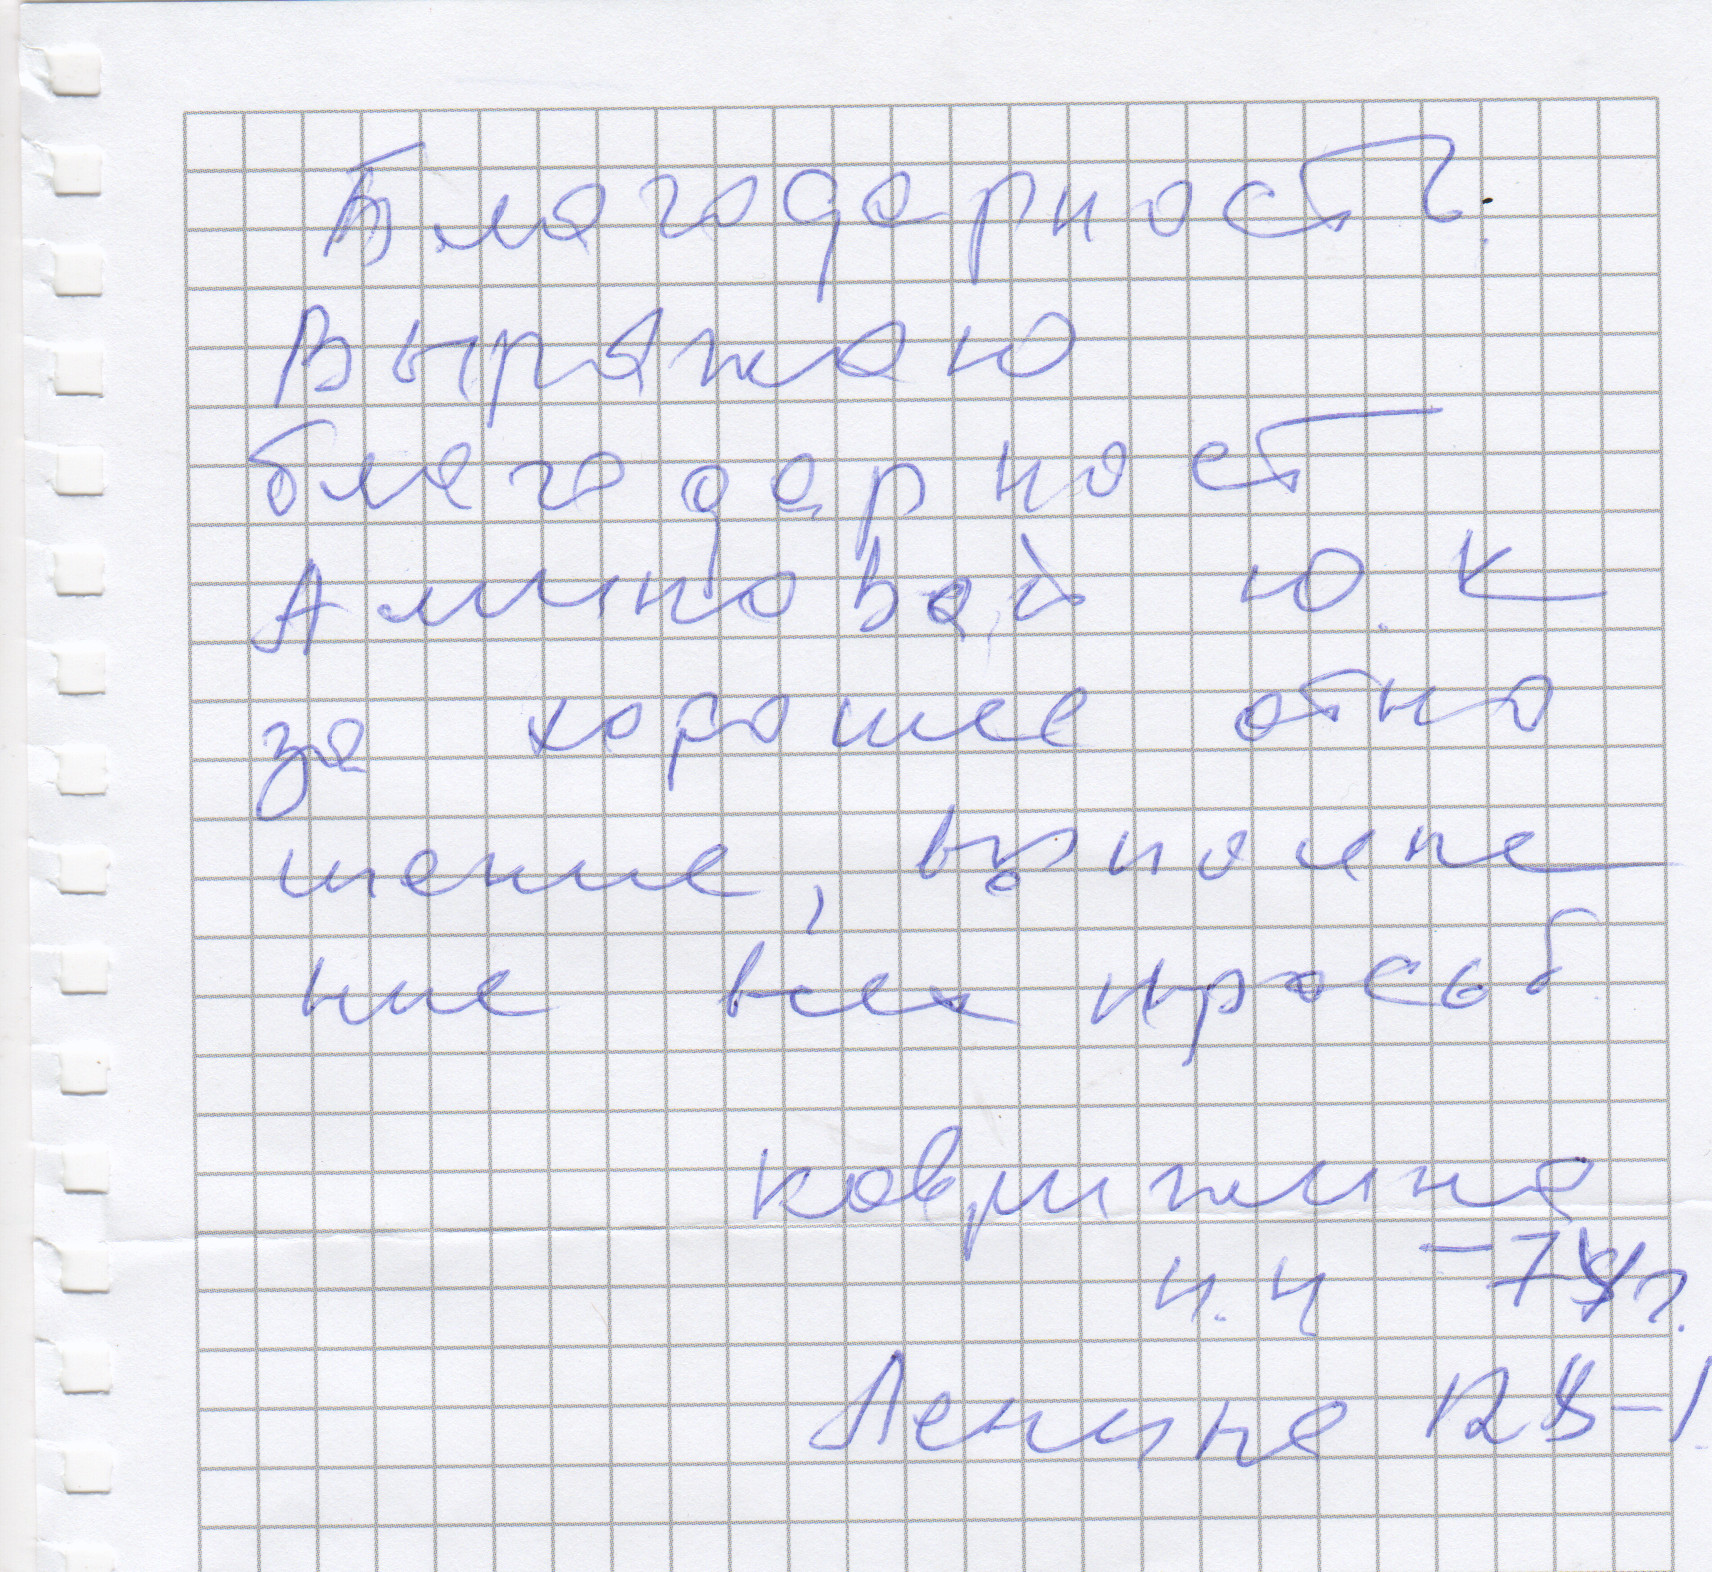 Благодарность.
Выражаю
благодарност
Аминовой Ю. К
за хорошее отно
шение, выполне
ние всех просьб.
Коврижина
Н. Н
Ленина